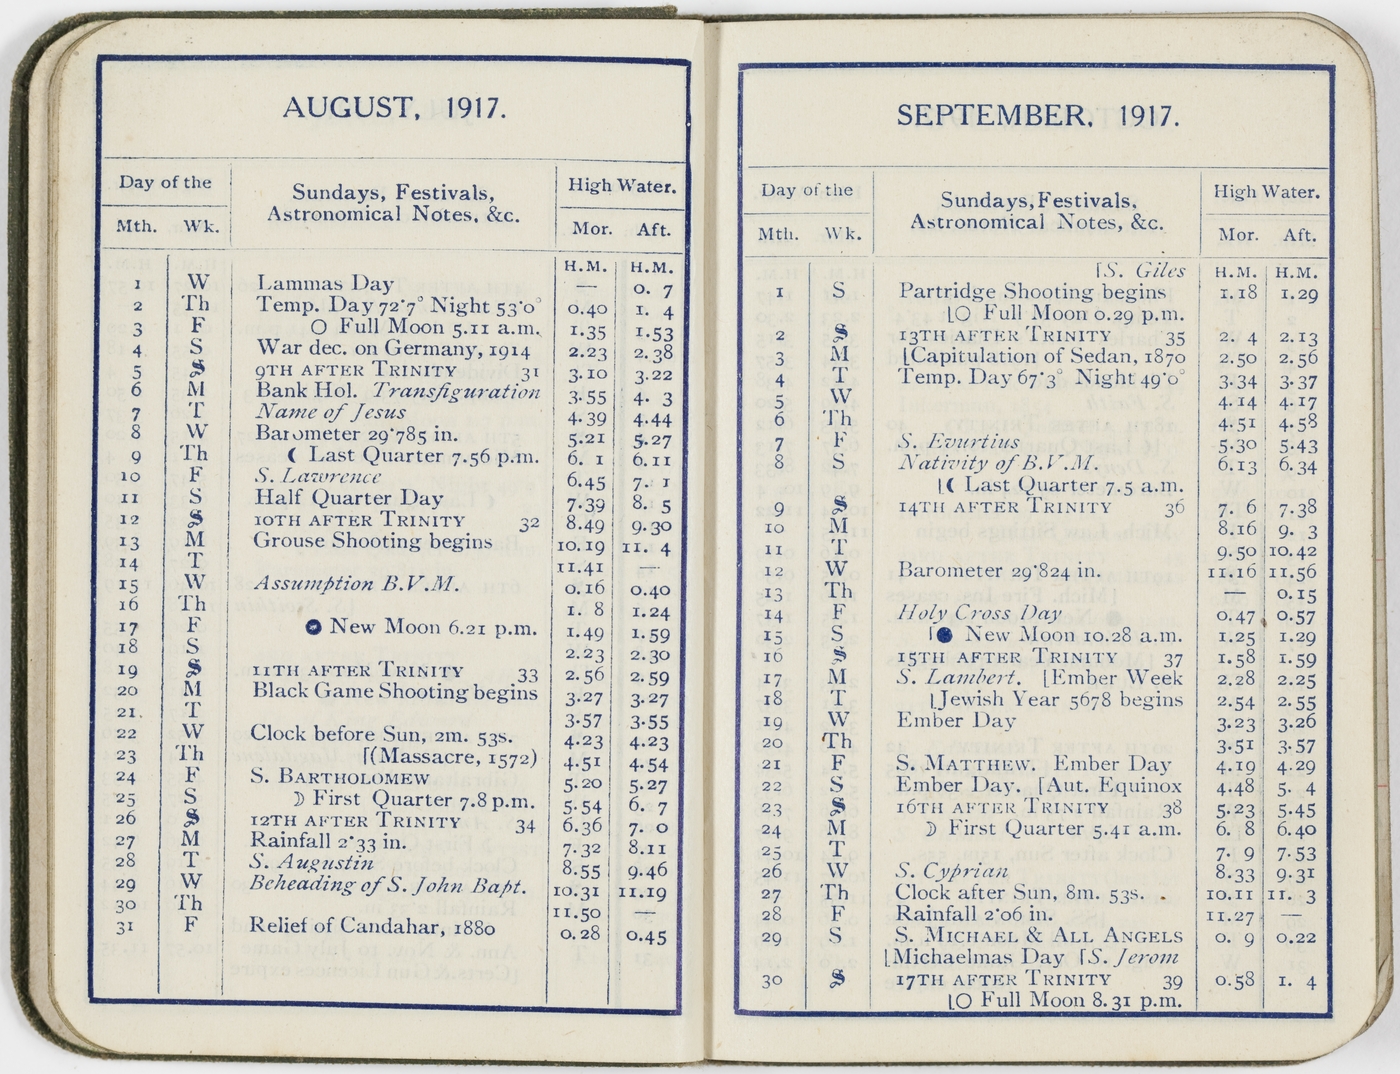 AUGUST, 1917.
Day of the
Sundays, Festivals,
Astronomical Notes, &c.
High Water.
Mth. Wk. Mor. Aft.
H.M. H.M.
1 W Lammas Day — 0. 7
2 Th Temp. Day 72·7° Night 53·0° 0.40 1. 4
3 F ○ Full Moon 5.11 a.m. 1.35 1.53
4 S War dec. on Germany, 1914 2.23 2.38
5 S 9TH AFTER TRINITY 31 3.10 3.22
6 M Bank Hol. Transfiguration 3.55 4. 3
7 T Name of Jesus 4.39 4.44
8 W Barometer 29·785 in. 5.21 5.27
9 Th ☾ Last Quarter 7.56 p.m. 6. 1 6.11
10 F S. Lawrence 6.45 7. 1
11 S Half Quarter Day 7.39 8. 5
12 S 10TH AFTER TRINITY 32 8.49 9.30
13 M Grouse Shooting begins 10.19 11. 4
14 T 11.41 —
15 W Assumption B.V.M. 0.16 0.40
16 Th 1. 8 1.24
17 F ● New Moon 6.21 p.m. 1.49 1.59
18 S 2.23 2.30
19 S 11TH AFTER TRINITY 33 2.56 2.59
20 M Black Game Shooting begins 3.27 3.27
21 T 3.57 3.55
22 W Clock before Sun, 2m. 53s. 4.23 4.23
23 Th ⌈(Massacre, 1572) 4.51 4.54
24 F S. BARTHOLOMEW 5.20 5.27
25 S ☽ First Quarter 7.8 p.m. 5.54 6. 7
26 S 12TH AFTER TRINITY 34 6.36 7. 0
27 M Rainfall 2·33 in. 7.32 8.11
28 T S. Augustin 8.55 9.46
29 W Beheading of S. John Bapt. 10.31 11.19
30 Th 11.50 —
31 F Relief of Candahar, 1880 0.28 0.45
SEPTEMBER, 1917.
Day of the
Sundays, Festivals,
Astronomical Notes, &c.
High Water.
Mth. Wk. Mor. Aft.
⌈S. Giles H.M. H.M.
1 S Partridge Shooting begins 1.18 1.29
⌊○ Full Moon 0.29 p.m.
2 S 13TH AFTER TRINITY 35 2. 4 2.13
3 M ⌊Capitulation of Sedan, 1870 2.50 2.56
4 T Temp. Day 67·3° Night 49·0° 3.34 3.37
5 W 4.14 4.17
6 Th 4.51 4.58
7 F S. Evurtius 5.30 5.43
8 S Nativity of B.V.M. 6.13 6.34
⌊☾ Last Quarter 7.5 a.m.
9 S 14TH AFTER TRINITY 36 7. 6 7.38
10 M 8.16 9. 3
11 T 9.50 10.42
12 W Barometer 29·824 in. 11.16 11.56
13 Th — 0.15
14 F Holy Cross Day 0.47 0.57
15 S ⌈● New Moon 10.28 a.m. 1.25 1.29
16 S 15TH AFTER TRINITY 37 1.58 1.59
17 M S. Lambert. ⌊Ember Week 2.28 2.25
18 T ⌊Jewish Year 5678 begins 2.54 2.55
19 W Ember Day 3.23 3.26
20 Th 3.51 3.57
21 F S. MATTHEW. Ember Day 4.19 4.29
22 S Ember Day. ⌈Aut. Equinox 4.48 5. 4
23 S 16TH AFTER TRINITY 38 5.23 5.45
24 M ☽ First Quarter 5.41 a.m. 6. 8 6.40
25 T 7. 9 7.53
26 W S. Cyprian 8.33 9.31
27 Th Clock after Sun, 8m. 53s. 10.11 11. 3
28 F Rainfall 2·06 in. 11.27 —
29 S S. MICHAEL & ALL ANGELS 0. 9 0.22
⌊Michaelmas Day ⌈S. Jerom
30 S 17TH AFTER TRINITY 39 0.58 1. 4
⌊○ Full Moon 8.31 p.m.